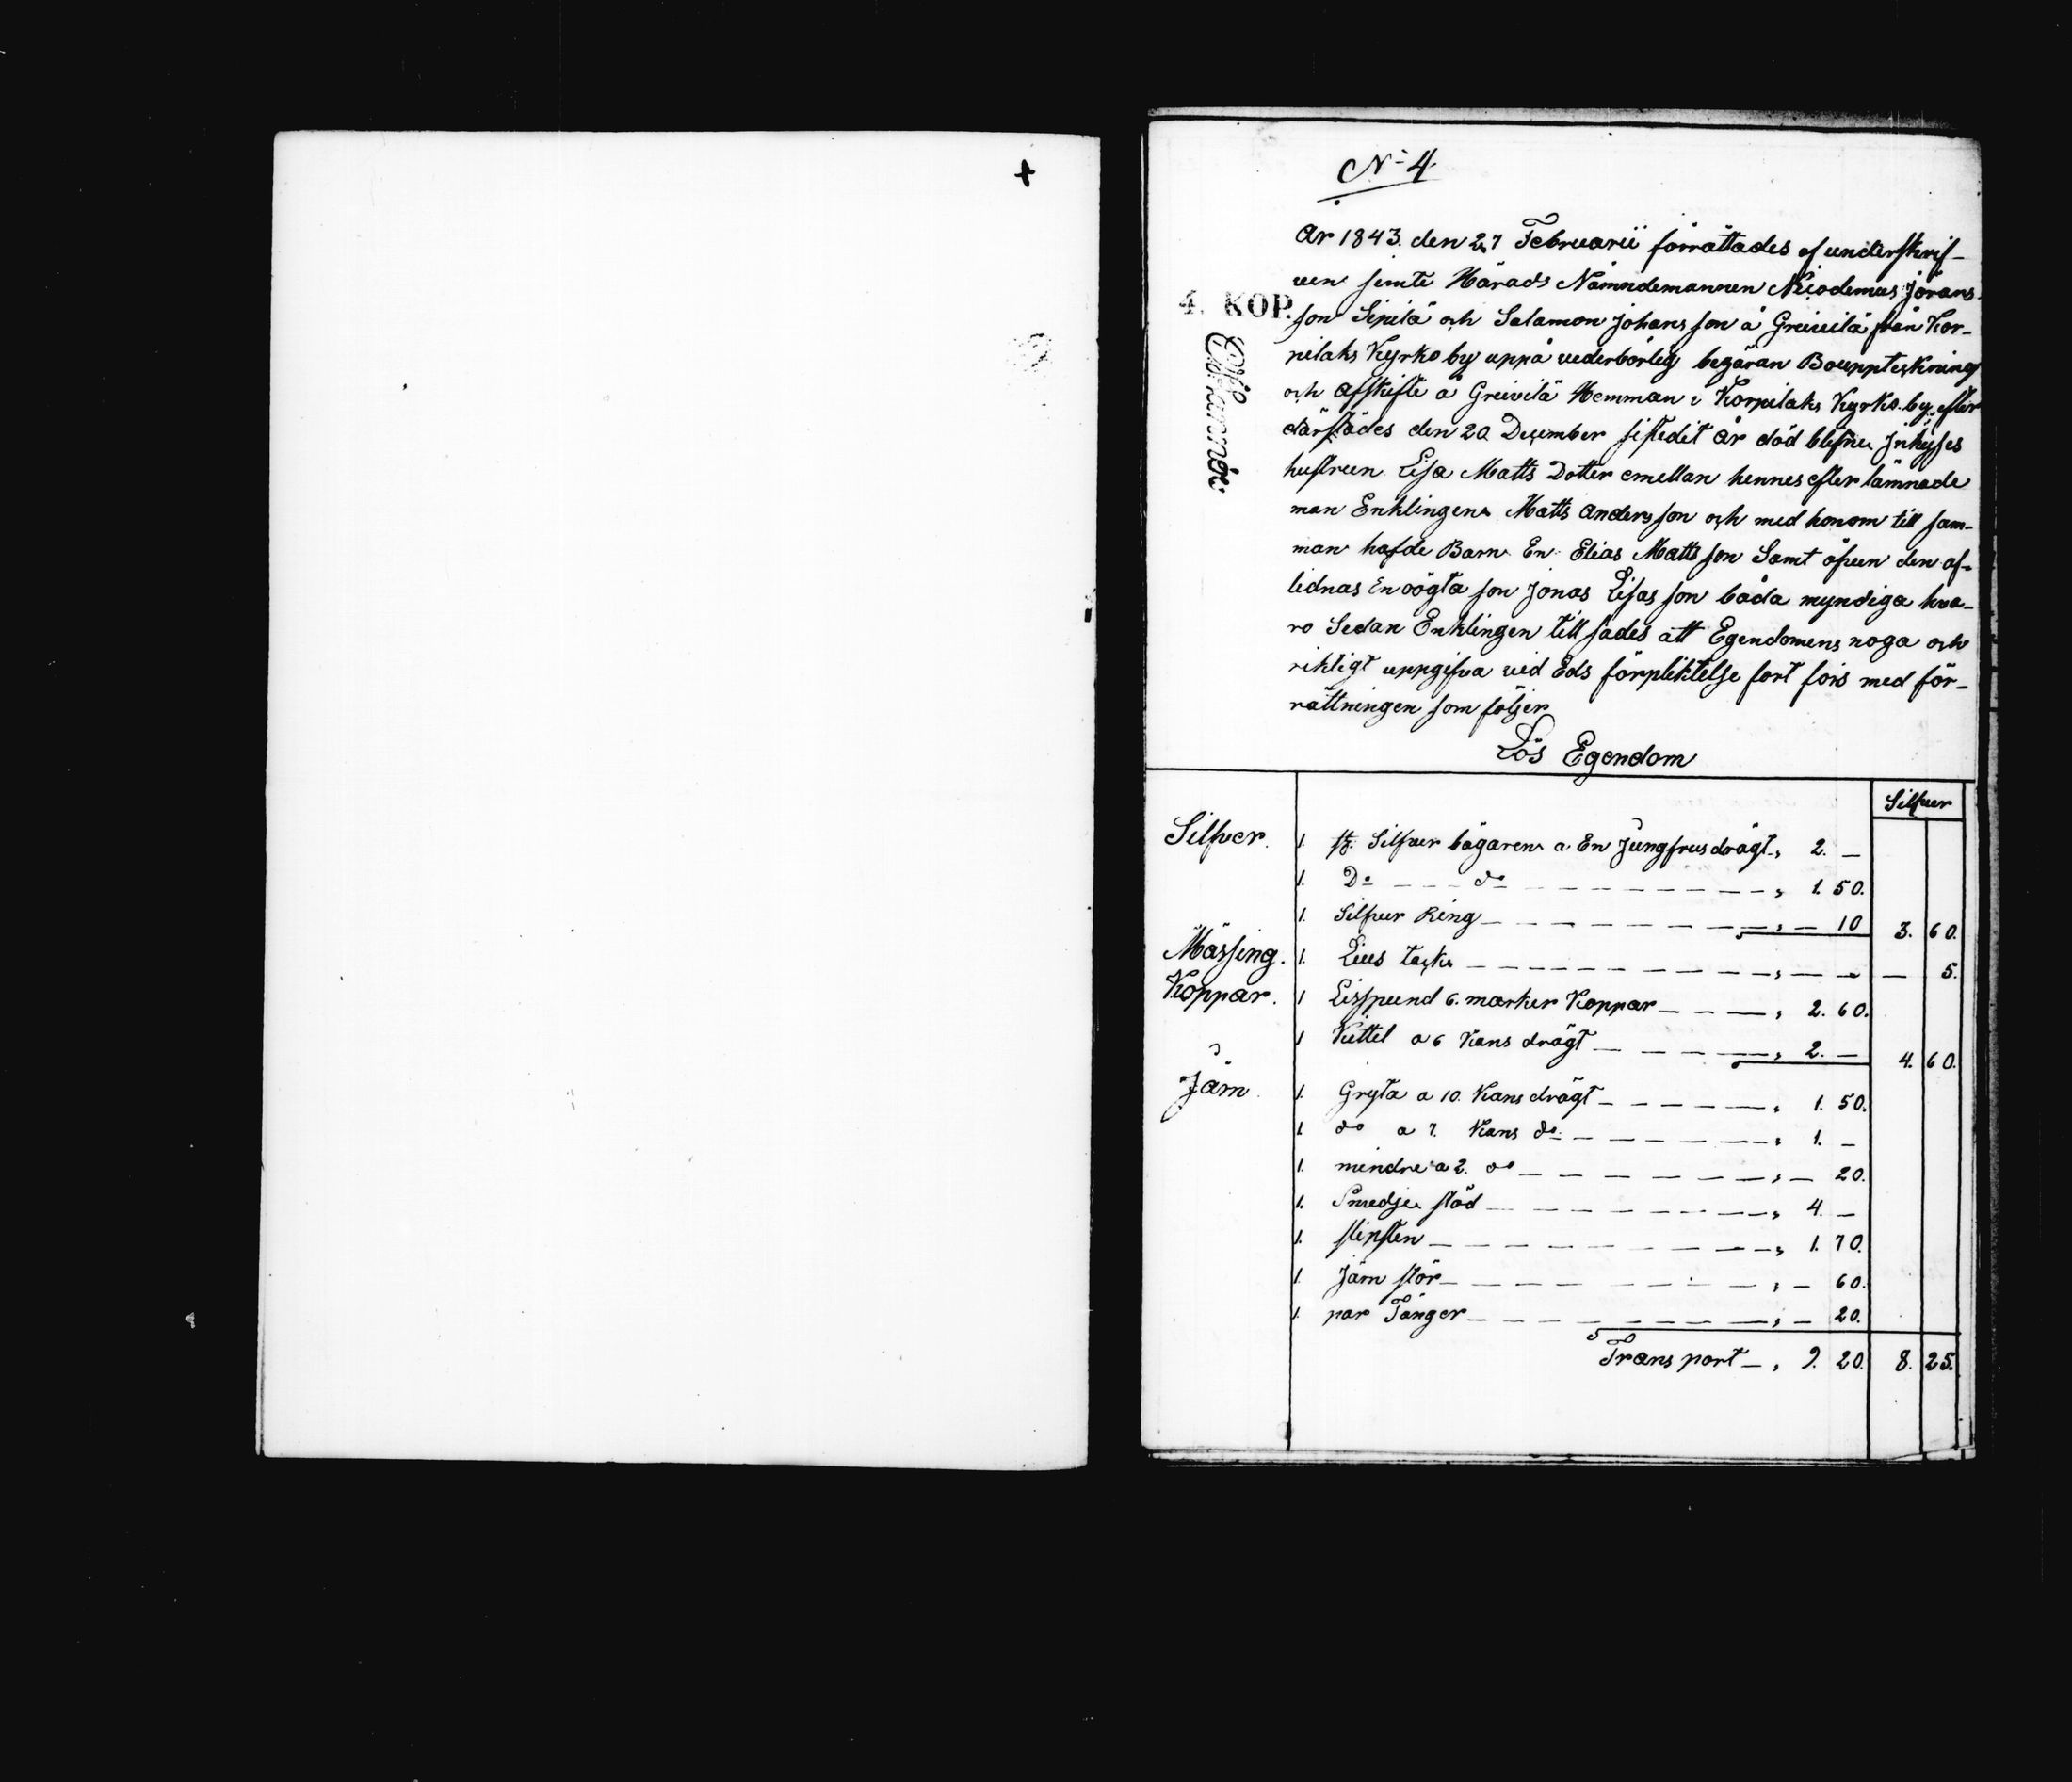 N: 4.
År 1843. den 27 Februarii förrättades af underskrif-
ven jemte Härads Nämndemannen Nicodemus Jörans
son Sipilä och Salamon Johansson å Greivilä från Kor-
pilaks Kyrko by uppå vederbörlig begäran Bouppteckning
och Afskifte å Greivilä Hemman i Korpilaks Kyrko by, efter
därstädes den 20 December sistedit År död blefne Inhyses
hustrun Lisa Matts Dotter emellan hennes efter lämnade
man Enklingen Matts Andersson och med honom till sam-
man hafde Barn En Elias Mattsson Samt äfven den af-
lidnas En oägta son Jonas Lisas son båda myndiga hva-
ro Sedan Enklingen till sades att Egendomens noga och
riktigt uppgifva vid Eds förpliktelse fort fors med för-
rättningen som följer
4. KOP.
Lös Egendom
Silfver
Silfver. 1. st. Silfver bägaren a En Jungfrus drägt „ 2. —
1. Do do „ 1. 50.
1. Silfver Ring „ — 10 3. 60.
Mässing. 1. Lius tack „ — — — 5.
Koppar. 1 Lisspund 6. marker Koppar „ 2. 60.
1 Kittel a 6 Kans drägt „ 2. — 4. 60.
Järn. 1. Gryta a 10. Kans drägt „ 1. 50.
1. do a 7. Kans do „ 1. —
1. mindre a 2. do „ — 20.
1. Smedje städ „ 4. —
1. slipsten „ 1. 70.
1. Järn stör „ — 60.
1. par Tänger „ — 20.
Transport „ 9. 20. 8. 25.